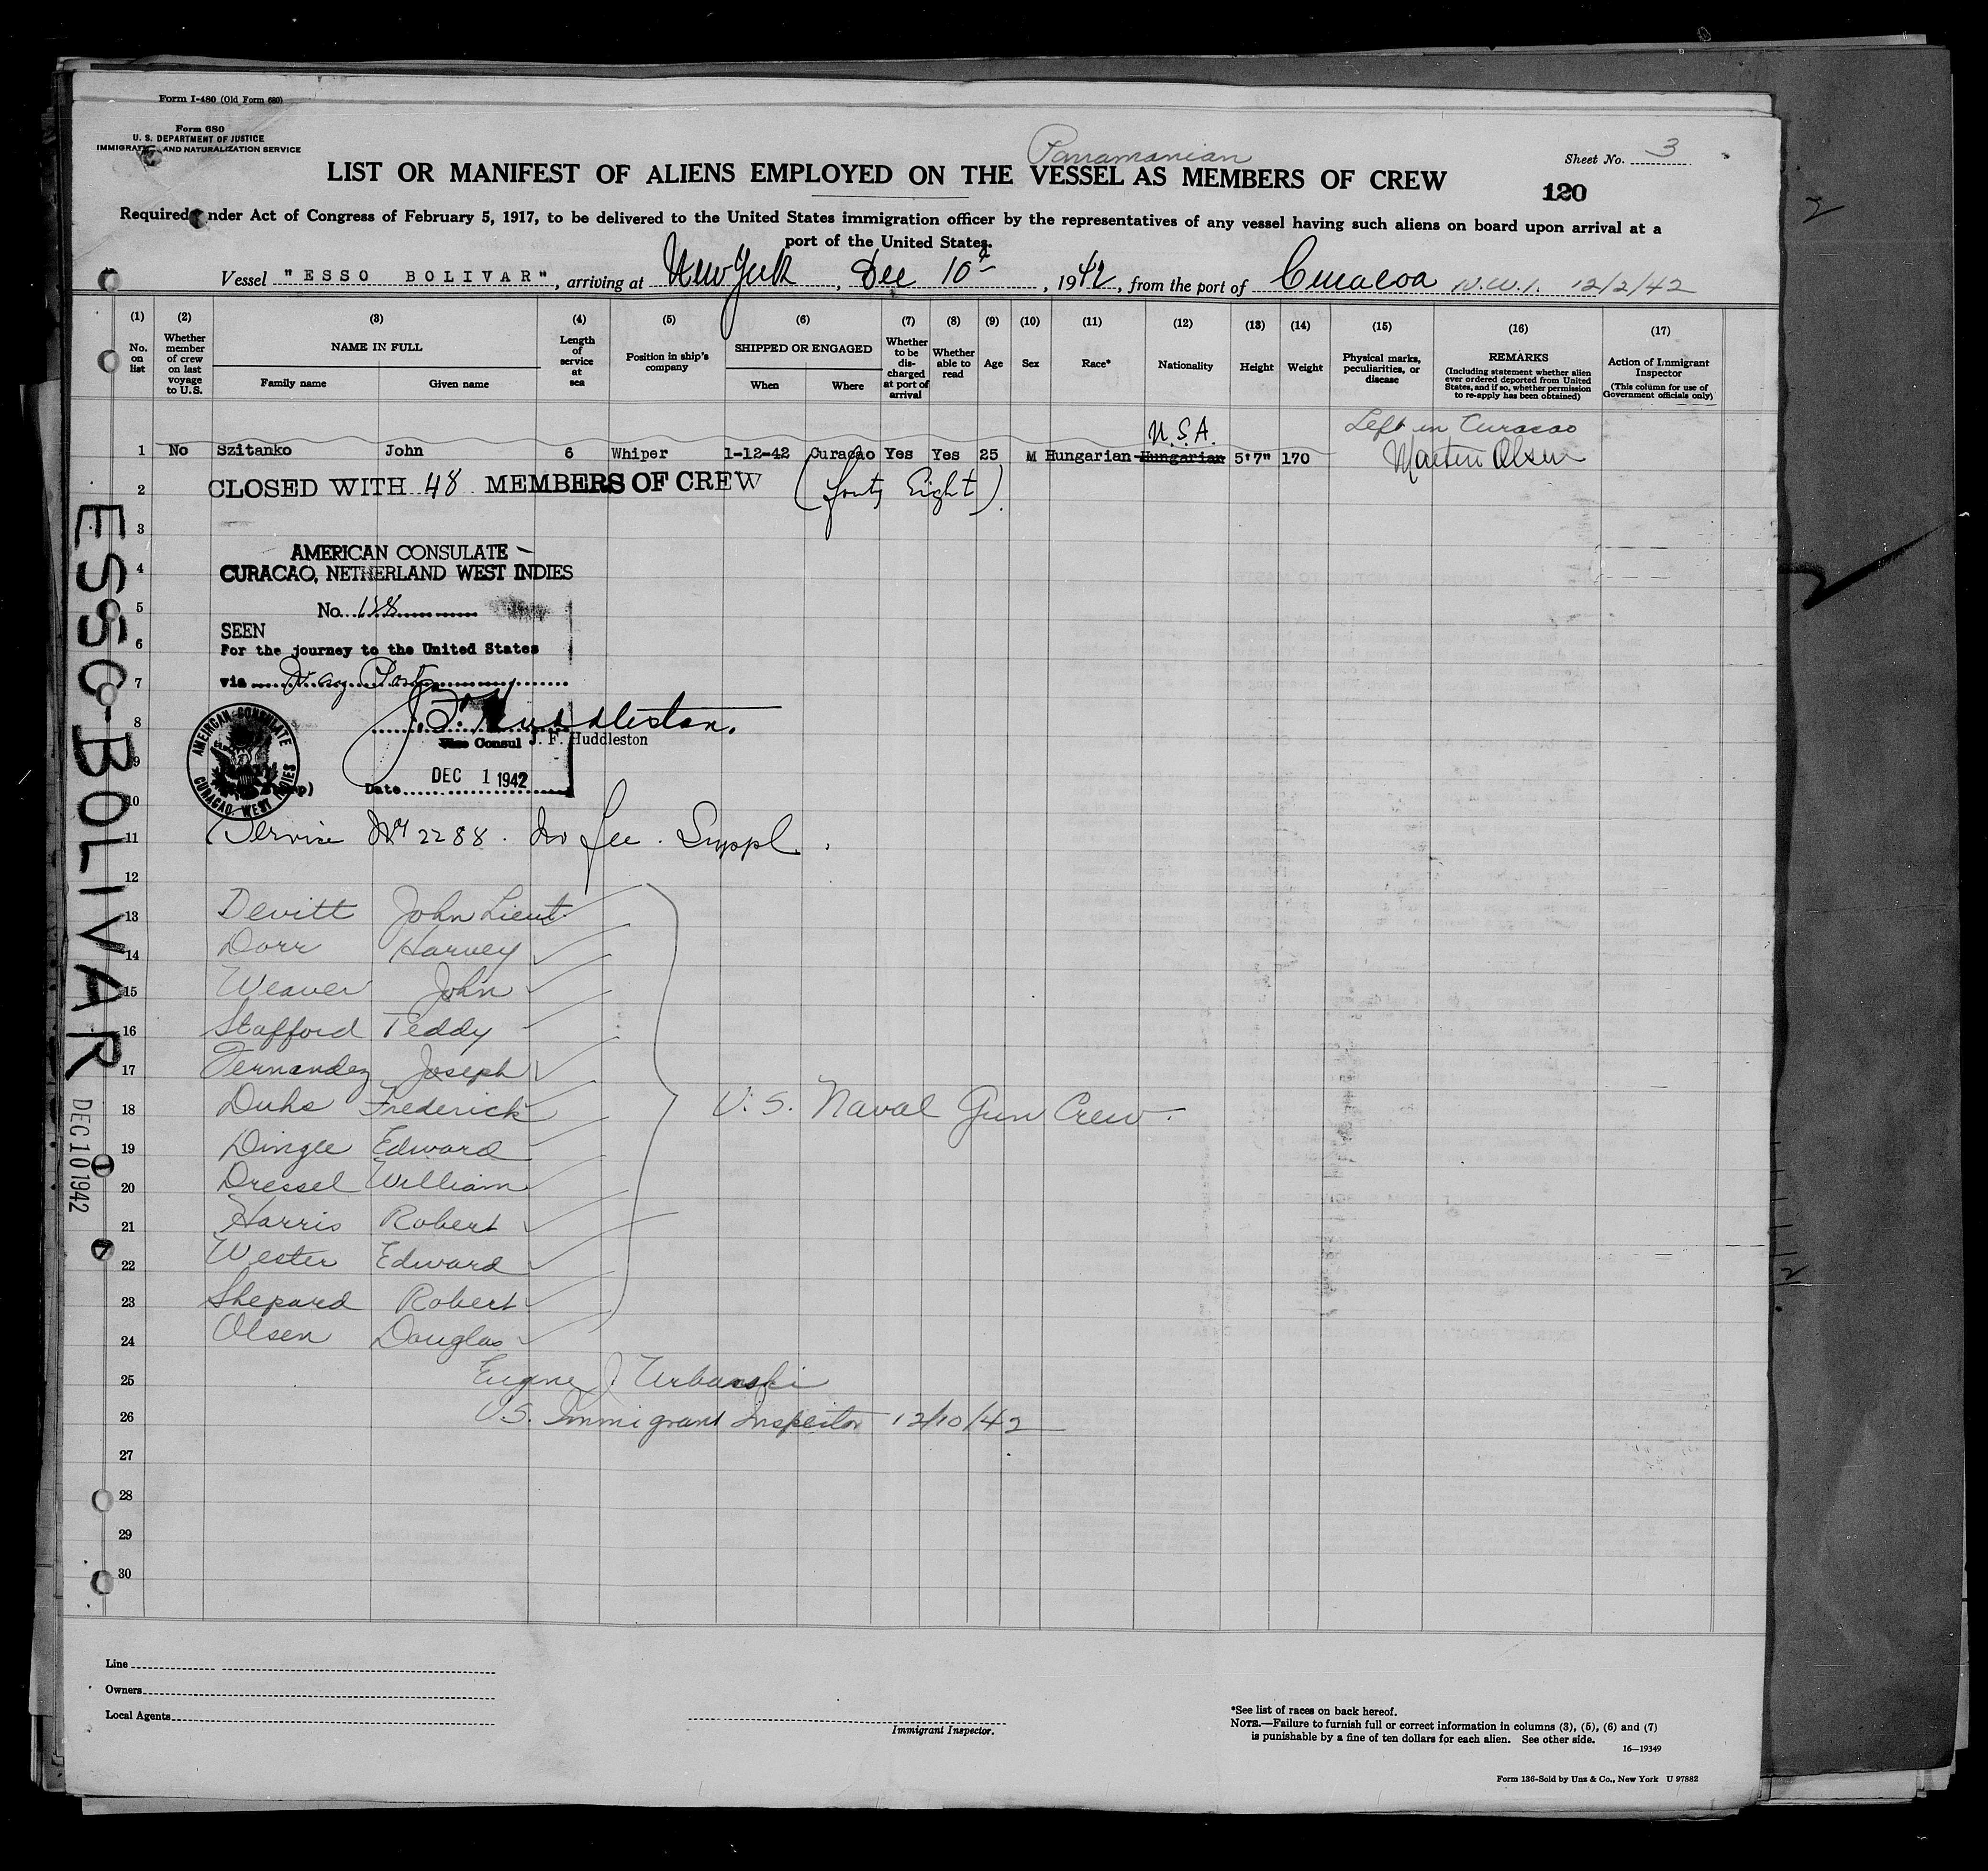 Form I-480 (Old Form 680)
Form 680
U. S. DEPARTMENT OF JUSTICE
IMMIGRATION AND NATURALIZATION SERVICE
Panamanian
Sheet No. 3
LIST OR MANIFEST OF ALIENS EMPLOYED ON THE VESSEL AS MEMBERS OF CREW
120
Required under Act of Congress of February 5, 1917, to be delivered to the United States immigration officer by the representatives of any vessel having such aliens on board upon arrival at a
port of the United States.
Vessel "ESSO BOLIVAR", arriving at New York, Dec 10th, 1942, from the port of Curacoa N.W.I. 12/2/42
(1) (2) (3) (4) (5) (6) (7) (8) (9) (10) (11) (12) (13) (14) (15) (16) (17)
No. on list
Whether member of crew on last voyage to U.S.
NAME IN FULL
Family name Given name
Length of service at sea
Position in ship's company
SHIPPED OR ENGAGED
When Where
Whether to be discharged at port of arrival
Whether able to read
Age
Sex
Race*
Nationality
Height
Weight
Physical marks, peculiarities, or disease
REMARKS
(Including statement whether alien ever ordered deported from United States, and if so, whether permission to re-apply has been obtained)
Action of Immigrant Inspector
(This column for use of Government officials only)
U.S.A. Left in Curacao
1 No Szitanko John 6 Whiper 1-12-42 Curaçao Yes Yes 25 M Hungarian Hungarian 5'7" 170 Martin Olsen
2 CLOSED WITH 48 MEMBERS OF CREW (forty Eight)
3
AMERICAN CONSULATE
4 CURACAO, NETHERLAND WEST INDIES
5 No. 128
SEEN
6 For the journey to the United States
7 via
8 J. F. Huddleston.
Vice Consul J. F. Huddleston
9
DEC 1 1942
Date
AMERICAN CONSULATE CURACAO, WEST INDIES
10
11 Service No 2288. No fee. Suppl.
12
13 Devitt John Lieut.
14 Dorr Harvey
15 Weaver John
16 Stafford Teddy
17 Fernandez Joseph
18 Duhs Frederick U. S. Naval Gun Crew.
19 Dingee Edward
20 Dressel William
21 Harris Robert
22 Wester Edward
23 Shepard Robert
24 Olsen Douglas
25 Eugene J. Urbanski
26 U.S. Immigrant Inspector 12/10/42
27
28
29
30
ESSO-BOLIVAR
DEC 10 1942
Line
Owners
Local Agents
Immigrant Inspector.
*See list of races on back hereof.
NOTE.—Failure to furnish full or correct information in columns (3), (5), (6) and (7)
is punishable by a fine of ten dollars for each alien. See other side.
16—19349
Form 136-Sold by Unz & Co., New York U 97882